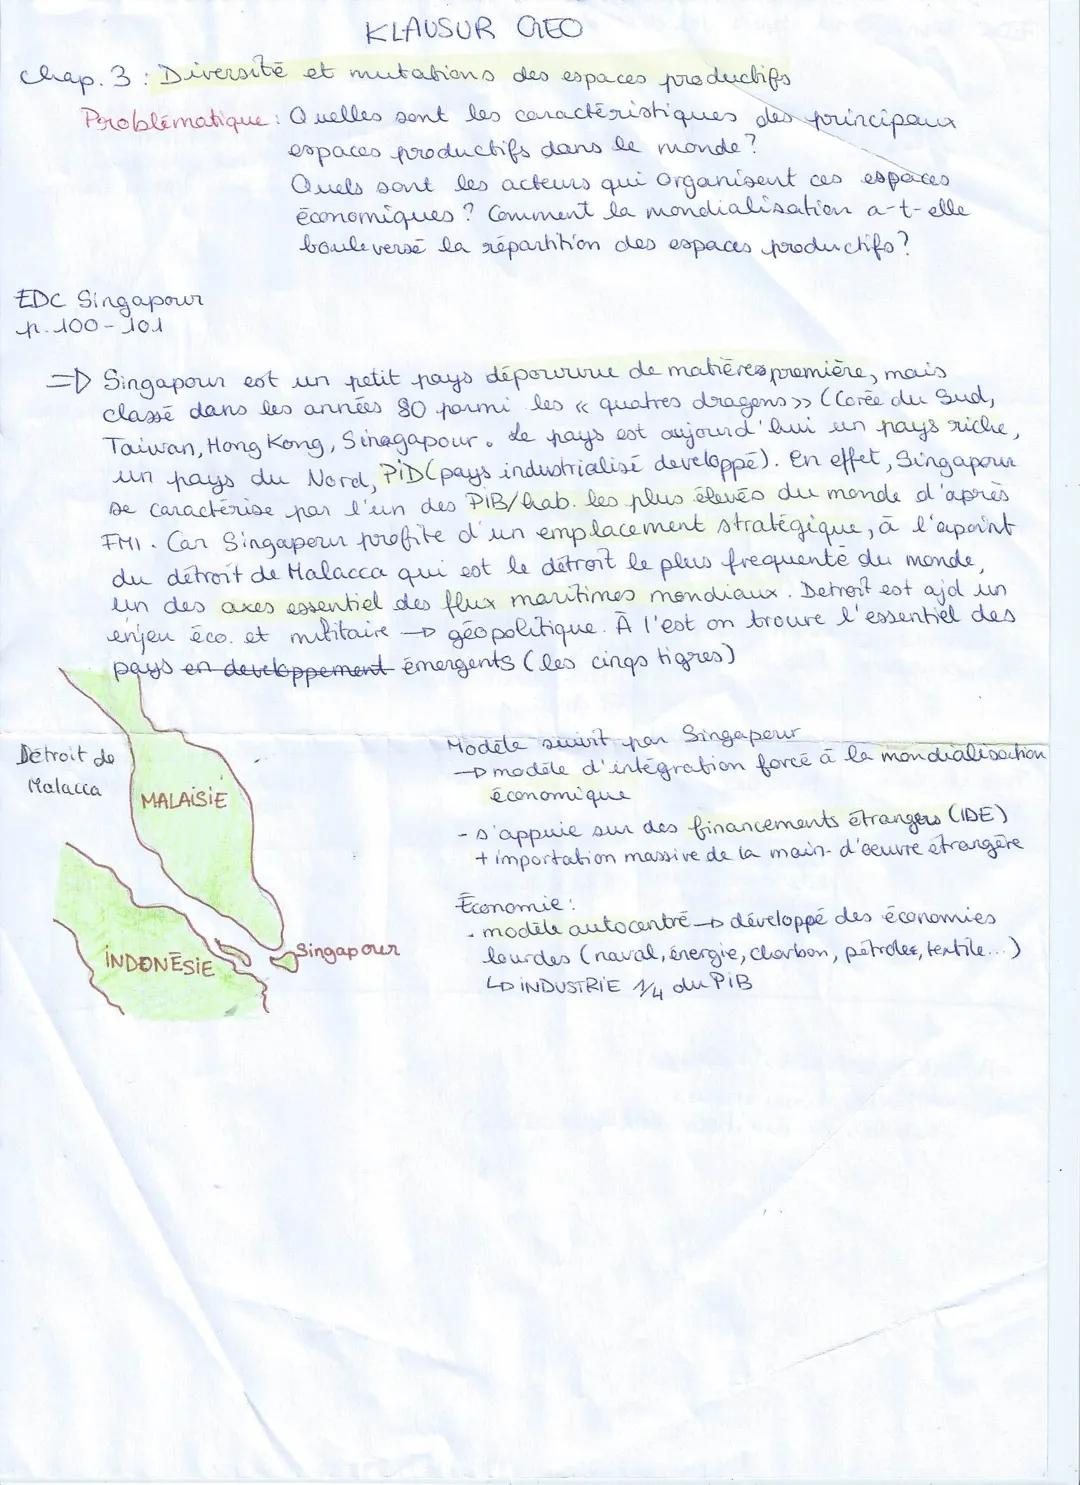 KLAUSUR GEO
Chap. 3 : Diversité et mutations des espaces productifs
Problématique : Quelles sont les caractéristiques des principaux
espaces productifs dans le monde ?
Quels sont les acteurs qui organisent ces espaces
économiques ? Comment la mondialisation a-t-elle
bouleversé la répartition des espaces productifs ?
EDC Singapour
p. 100 - 101
=> Singapour est un petit pays dépourvue de matières première, mais
classé dans les années 80 parmi les « quatres dragens » (Corée du Sud,
Taiwan, Hong Kong, Sinagapour. Le pays est aujourd'hui un pays riche,
un pays du Nord, PiD (pays industrialisé developpé). En effet, Singapour
se caractérise par l'un des PIB/hab. les plus élevés du monde d'après
FMI. Car Singapour profite d'un emplacement stratégique, à l'apoint
du détroit de Malacca qui est le détroit le plus frequenté du monde,
un des axes essentiel des flux maritimes mondiaux. Detroit est ajd un
enjeu éco. et militaire → géopolitique. À l'est on trouve l'essentiel des
pays en developpement émergents (les cinqs tigres)
Détroit de
Malacca
MALAiSiE
iNDONÉSiE
Singapour
Modèle suivit par Singapour
→ modèle d'intégration forcé à la mondialisation
économique
- s'appuie sur des financements étrangers (IDE)
+ importation massive de la main-d'œuvre étrangère
Économie :
. modèle autocentré → développé des économies
lourdes (naval, énergie, charbon, pétroles, textile...)
↳ iNDUSTRIE 1/4 du PiB